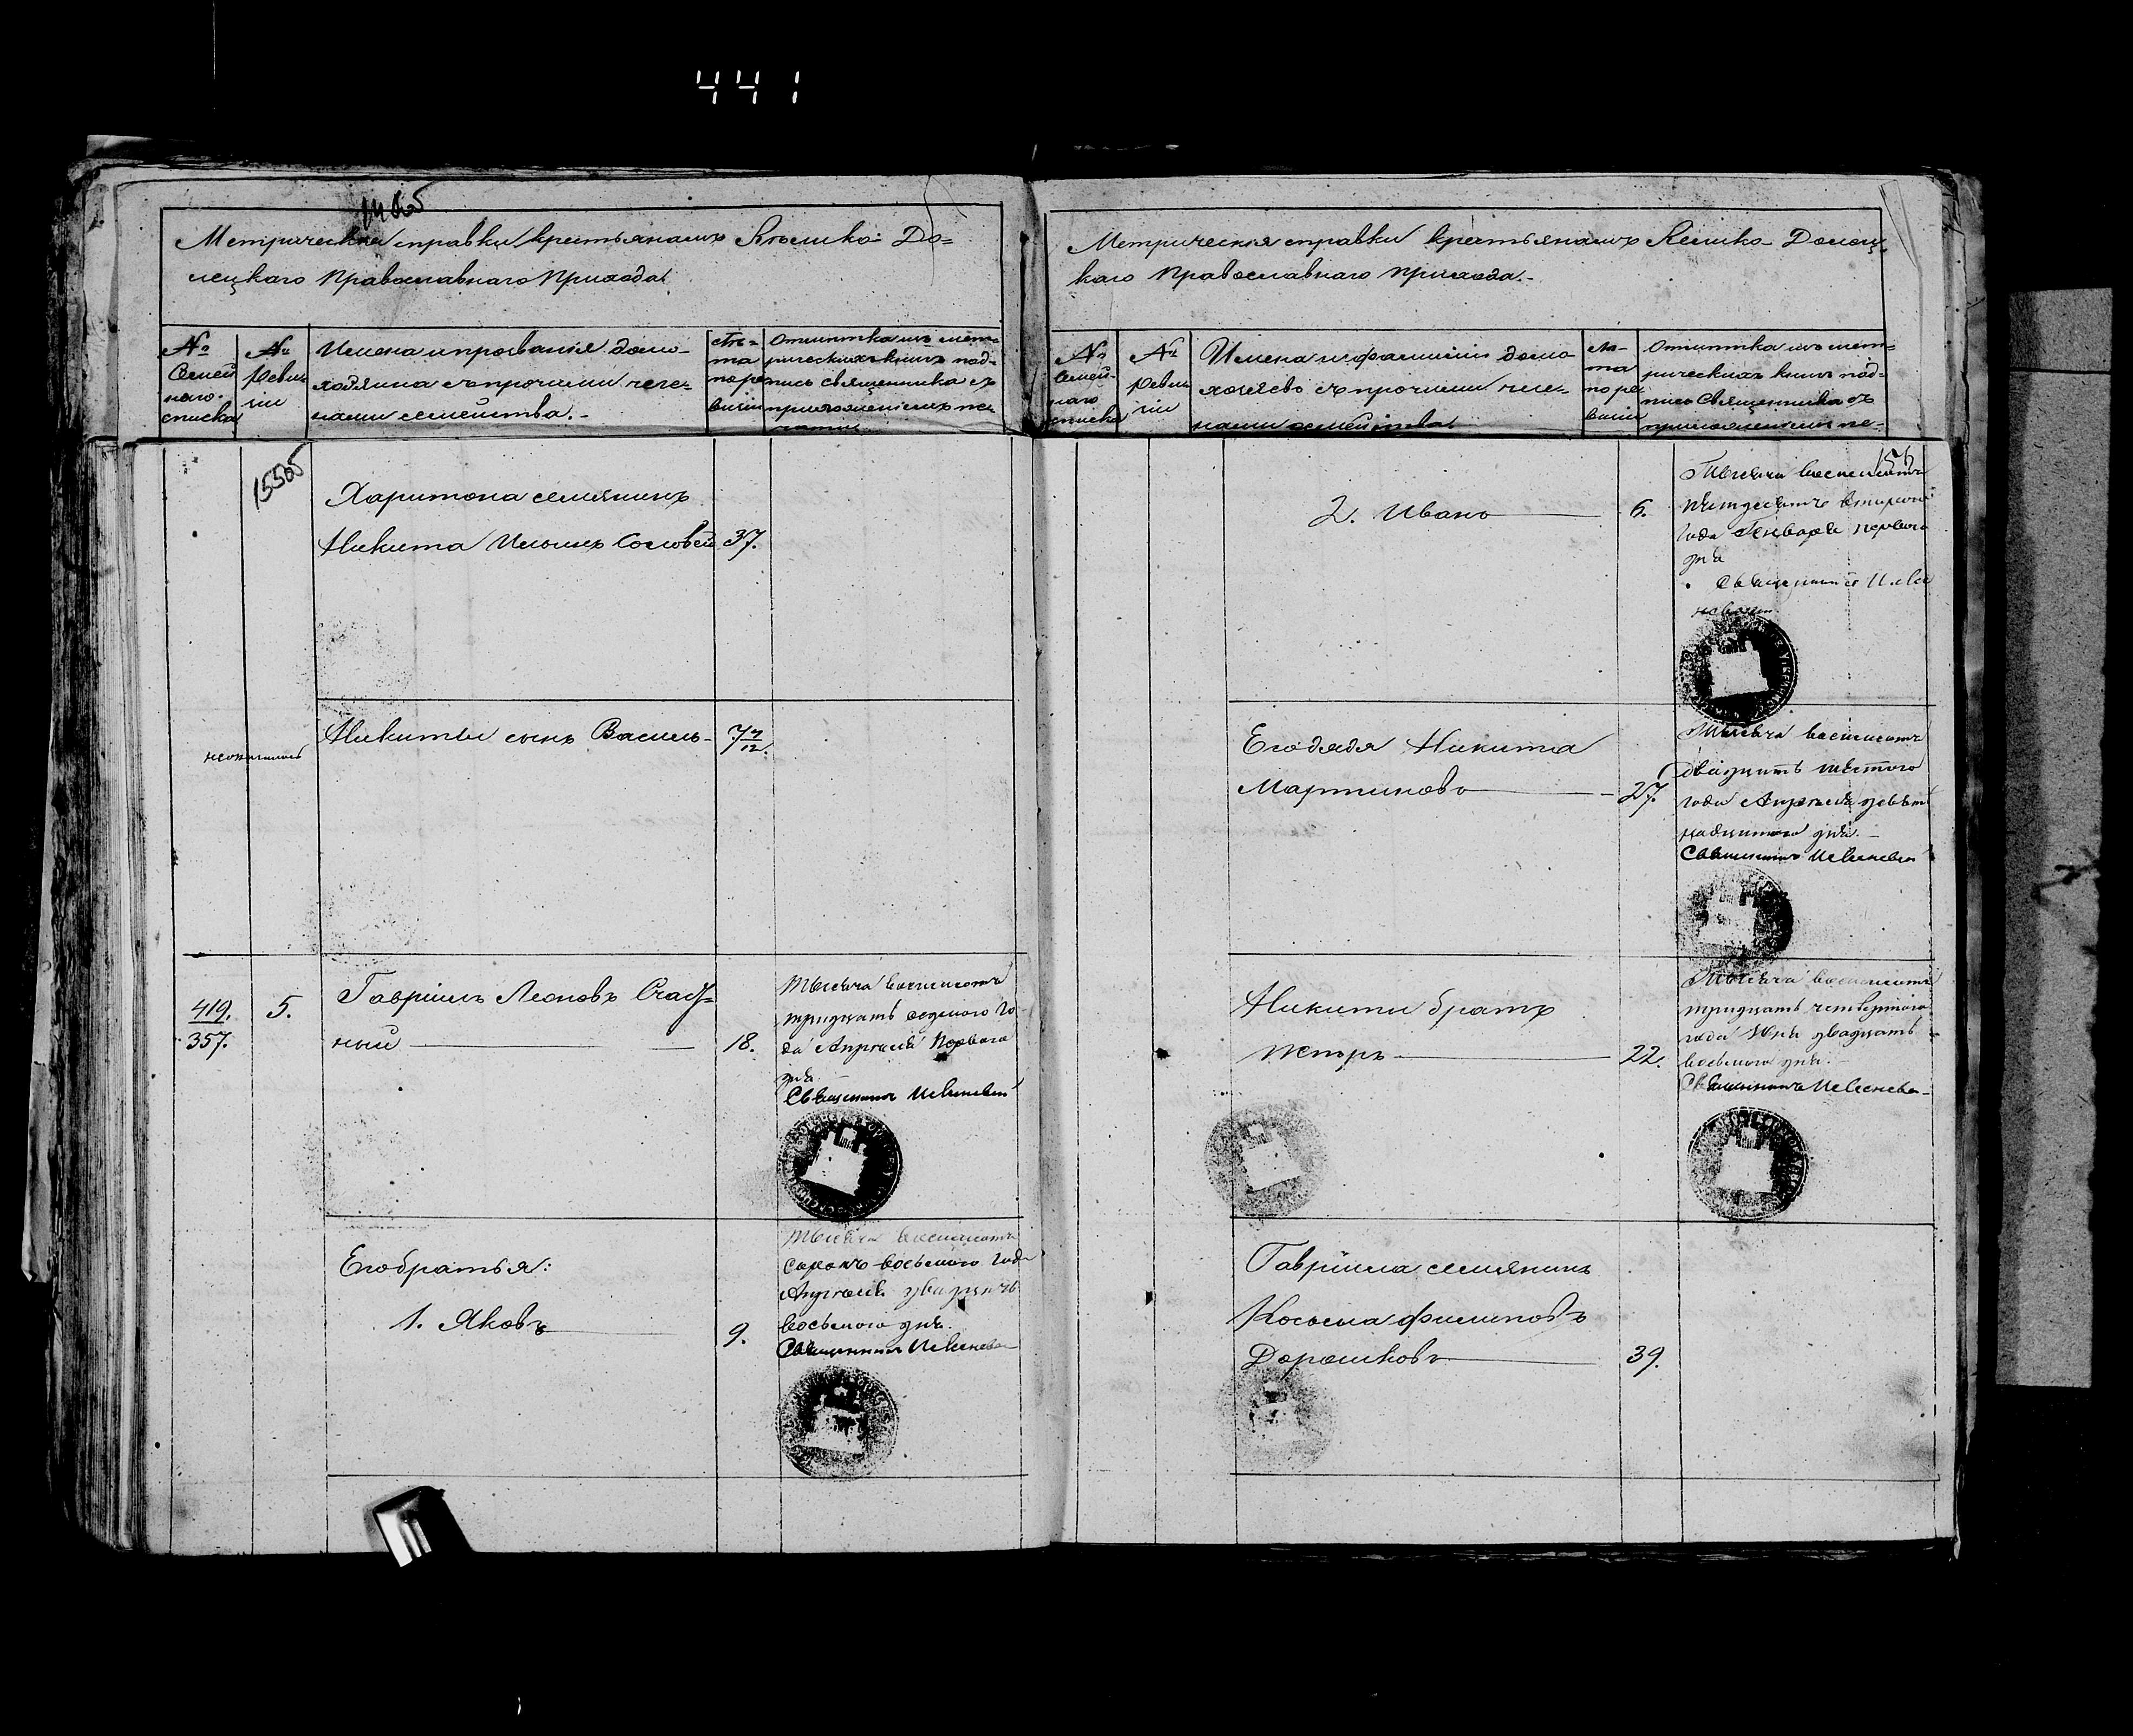 441
Метрическія справки крестьянамъ Велико-До-
лецкаго Православнаго Прихода.
№
Семей
наго
списка
№
Реви
зіи
Имена и прозванія домо-
хозяина съ прочими чле-
нами семейства.-
Лѣ-
та
по ре
визіи
Отмѣтка изъ мет-
рическихъ книгъ под-
пись священника съ
приложеніемъ пе-
чати
15505
Харитона семянинъ
Никита Соловей 37.
Никиты сынъ Василь- 7 7/12.
419.
357.
5.
Гавріилъ Леоновъ
ный 18.
Тысяча восемьсотъ
тридцать седмого го-
да Апрѣля перваго
дня
Священникъ
Его братья:
1. Яковъ 9.
Тысяча восемьсотъ
сорокъ восьмого года
Апрѣля двадцать
восьмого дня.
Священникъ
Метрическія справки крестьянамъ Велико-Долец-
каго Православнаго прихода.-
№
Семей-
наго
списка
№
Реви
зіи
Имена и фамиліи домо
хозяевъ съ прочими чле-
нами семейства
Лѣ-
та
по ре
визіи
Отмѣтка изъ мет-
рическихъ книгъ под-
пись Священника съ
приложеніемъ пе-
2. Иванъ 6.
Тысяча восемьсотъ
пятдесятъ втораго
года Генваря перваго
дня
Священникъ
Его дядя Никита
Мартиновъ 27.
Тысяча восемьсотъ
двадцать шестого
года Апрѣля девят
надцатого дня.-
Священникъ
Никиты братъ
Петръ 22.
Тысяча восемьсотъ
тридцать четвертого
года двадцать
восьмого дня.
Священникъ
Гавріила семянинъ
Косьма Филиповъ
Дорошковъ 39.